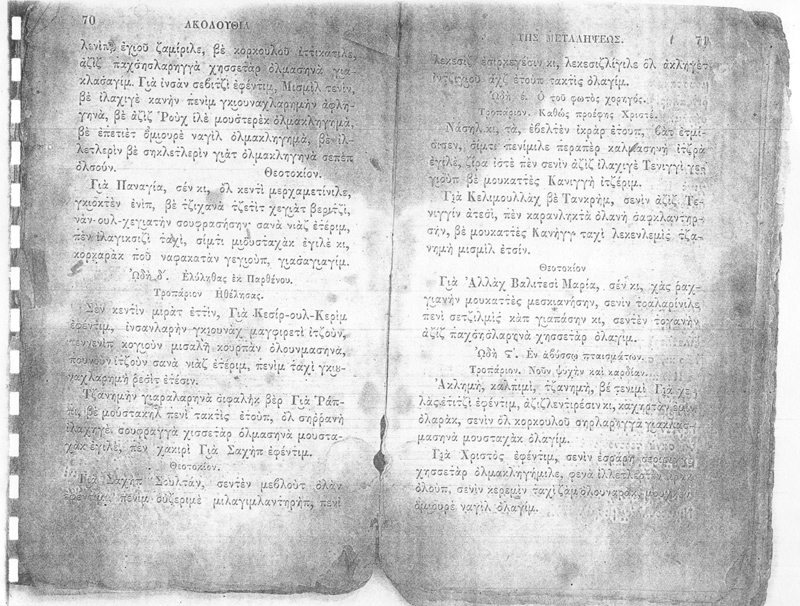 70
ΑΚΟΛΟΥΘΙΑ
λενὶπ, ἐγιοῦ ζαμίριλε, βὲ κορκουλοῦ ἐττικατιλε,
ἀζὶζ παχσησλαρηγγὰ χησσετὰρ ὀλμασηνὰ γιὰ
κλασαγίμ. Γιὰ ἰνσὰν σεβιτζὶ ἐφέντιμ, Μισμὶλ τενίν,
βὲ ἰλαχιγὲ κανὴν πενὶμ γκιουναχλαρημὴν ἀφλη-
γηνὰ, βὲ ἀζὶζ Ῥοὺχ ἰλὲ μουστερὲκ ὀλμακληγημὰ,
βὲ ἐπετιὲτ ὀμιουρὲ ναγὶλ ὀλμακληγημὰ, βὲ ἰλ-
λετλερὶν βὲ σηκλετλερὶν γιὰτ ὀλμακληγηνὰ σεπὲπ
ὀλσοῦν.
Θεοτοκίον.
Γιὰ Παναγία, σέν κι, ὂλ κεντὶ μερχαμετίνιλε,
γκιοκτὲν ἐνὶπ, βὲ τζιχανὰ τζετὶτ χεγιὰτ βεριτζὶ,
νὰν-ουλ-χεγιατὴν σουφρασήσην· σανὰ νιὰζ ἐτέριμ,
πὲν ἰλαγικσιζὶ ταχὶ, σίμτι μιουσταχὰκ ἐγιλὲ κι,
κορκαρὰκ ποῦ ναφακατὰν γεγιοὺπ, γιασαγιαγίμ.
ᾨδὴ δ΄. Ἐλύληθας ἐκ Παρθένου.
Τροπάριον Ἠθέλησας.
Σὲν κεντὶν μιρὰτ ἐττὶν, Γιὰ Κεσὶρ-ουλ-Κερὶμ
ἐφέντιμ, ἰνσανλαρὴν γκιουνὰχ μαγφιρετὶ ἰτζοὺν,
κογιοὺν μισαλὴ κουρπὰν ὀλουνμασηνὰ,
ἰτζοὺν σανὰ νιὰζ ἐτέριμ, πενὶμ ταχὶ γκιου-
ναχλαρημὴ ρεσὶτ ἐτέσιν.
Τζανημὴν γιαραλαρηνὰ σιφαλὴκ βὲρ Γιὰ Ῥάπ-
πι, βὲ μούστακηλ πενὶ τακτὶς ἐτοὺπ, ὂλ σηρρανὴ
ἰλαχηγὲ σουφραγγὰ χισσετὰρ ὀλμασηνὰ μουστα-
χὰκ ἐγιλὲ, πὲν χακιρὶ Γιὰ Σαχὴπ ἐφέντιμ.
Θεοτοκίον.
Γιὰ Σαχὴπ Σουλτὰν, σεντὲν μεβλοὺτ ὀλὰν
ἐφέντιμι, πενὶμ οὐζεριμὲ μιλαγιμλαντηρὴπ, πενὶ

ΤΗΣ ΜΕΤΑΛΗΨΕΩΣ.
71
λεκεσὶζ ἐσιρκεγέσιν κι, λεκεσιζλίγιλε ὂλ ἀκληγὲτ-
ἀχζ ἐτοὺπ τακτὶς ὀλαγίμ.
ᾨδὴ ε. Ὁ τοῦ φωτὸς χορηγός.
Τροπάριον. Καθὼς προέφης Χριστέ.
Νάσηλ κι, τὰ, ἐβελτὲν ἰκρὰρ ἐτοὺπ, βὰτ ἐτμί-
σισεν, σίμτι πενίμιλε περαπὲρ καλμασηνὴ ἰτζρὰ
ἐγιλὲ, ζίρα ἰστὲ πὲν σενὶν ἀζὶζ ἰλαχιγὲ Τενιγγὶ γε-
γιοὺπ βὲ μουκαττὲς Κανιγγὴ ἰτζέριμ.
Γιὰ Κελιμουλλὰχ βὲ Τανκρὴμ, σενὶν ἀζὶζ Τε-
νιγγὶν ἀτεσὶ, πὲν καρανληκτὰ ὀλανὴ σαφκλαντηρ-
σὴν, βὲ μουκαττὲς Κανὴγγ ταχὶ λεκενλεμὶς τζα-
νημὴ μισμὶλ ἐτσίν.
Θεοτοκίον
Γιὰ Ἀλλὰχ Βαλιτεσὶ Μαρία, σέν κι, χὰς ραχ-
γιανὴν μουκαττὲς μεσκιανήσην, σενὶν τοαλαρίνιλε
πενὶ σετζιλμὶς κὰπ γιαπάσην κι, σεντὲν τογανὴν
ἀζὶζ παχσησλαρηνὰ χησσετὰρ ὀλαγίμ.
ᾨδὴ ς΄. Ἐν ἀβύσσῳ πταισμάτων.
Τροπάριον. Νοῦν ψυχὴν καὶ καρδίαν.
Ἀκλημὴ, καλπιμὶ, τζανημὴ, βὲ τενιμὶ Γιὰ χε-
λὰς ἐτιτζὶ ἐφέντιμ, ἀζιζλεντιρέσιν κι,
ὀλαρὰκ, σενὶν ὂλ κορκουλοῦ σηρλαρηγγὰ γιακλας-
μασηνὰ μουσταχὰκ ὀλαγίμ.
Γιὰ Χριστὸς ἐφέντιμ, σενὶν ἐσραρὴ
χησσετὰρ ὀλμακληγήμιλε, φενὰ ἰλλετλερτὲν
ὀλοὺπ, σενὶν κερεμὶν ταχὶ ζὰμ ὀλουναρὰκ,
ὀμιουρὲ ναγὶλ ὀλαγίμ.